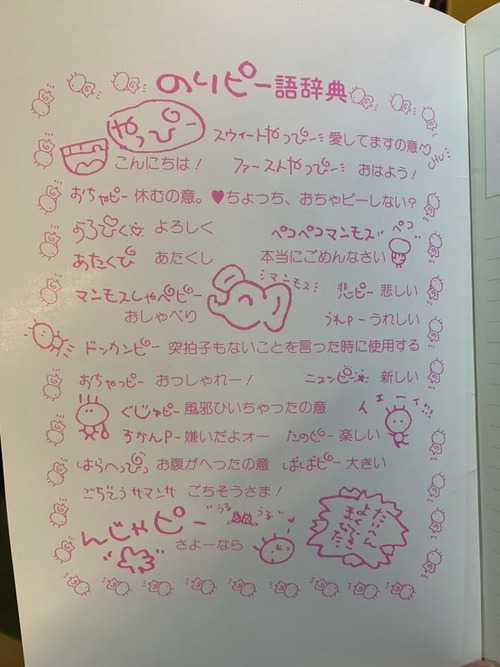 のりピー語辞典
やっぴー
スウィートやっぴー 愛してますの意
CHU
こんにちは！ ファーストやっぴー おはよう！
おちゃピー 休むの意。♥ちょっち、おちゃピーしない？
よろぴく よろしく
ペコペコマンモス ペコ
あたくぴ あたくし
本当にごめんなさい
マンモスしゃべピー
おしゃべり
マンモス
悲ピー 悲しい
うれP― うれしい
ドンカンピー 突拍子もないことを言った時に使用する
おちゃっピー おっしゃれー！
ニュンピー 新しい
ぐじゅピー 風邪ひいちゃったの意
イェーイ!!
すかんP― 嫌いだよオー
たのピー 楽しい
はらへっぴっ お腹がへったの意
ばばピー 大きい
ごちそうサマンサ ごちそうさま！
んじゃピー
うる うる
さよーなら